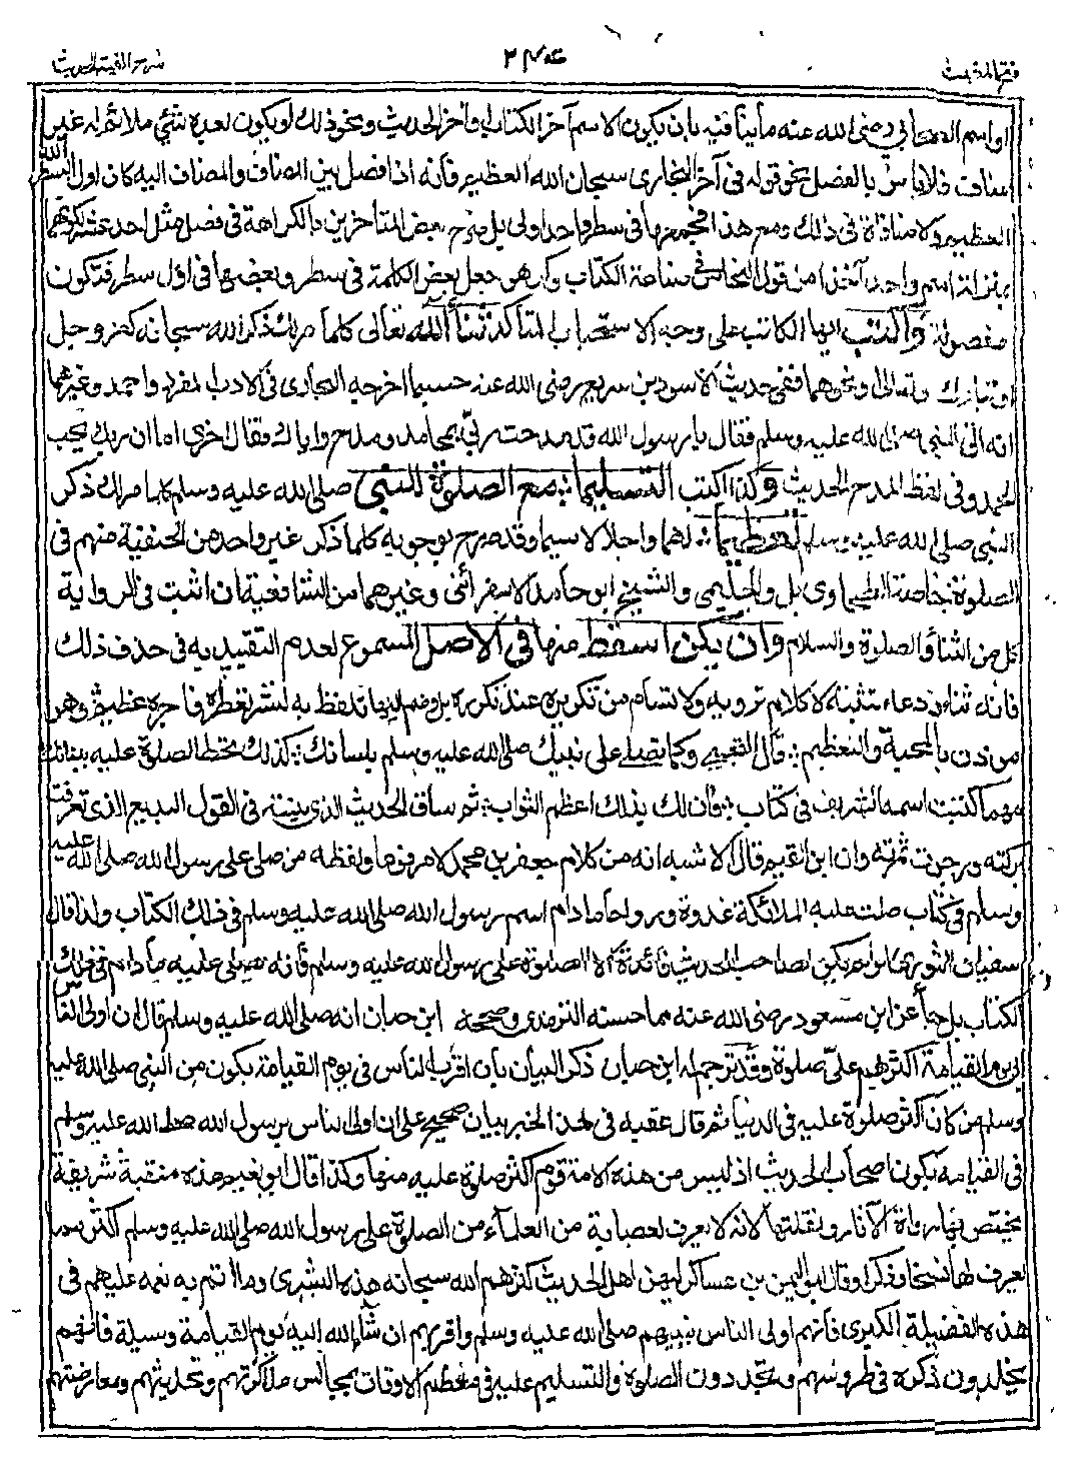 فتح المغيث
شرح الفية الحديث
او اسم الصحابي رضي الله عنه ما ينافيه بان يكون الاسم آخر الكتاب او آخر الحديث ونحو ذلك او يكون بعده شئ ملائم له غير
مناف فلا باس بالفصل نحو قوله في آخر البخاري سبحان الله العظيم فانه اذا فصل بين المضاف والمضاف اليه كان اول السطر الله
العظيم ولا منافاة في ذلك ومع هذا فجمعهما في سطر واحد اولى بل صرح بعض المتاخرين بالكراهة في فصل مثل احد عشر لكونهما
بمنزلة اسم واحد آخذا من قول النحاس في صناعة الكتاب وكرهو جعل بعض الكلمة في سطر وبعضها في اول سطر فتكون
مفصولة واكتب ايها الكاتب على وجه الاستحباب المتاكد ثناء الله تعالى كلما مر بك ذكر الله سبحانه كعز وجل
او تبارك وتعالى او نحوهما ففي حديث الاسود بن سريع رضي الله عنه حسبما اخرجه البخاري في الادب المفرد واحمد وغيرهما
انه اتى النبي صلى الله عليه وسلم فقال يا رسول الله قد مدحت ربي بمحامد ومدح واياك فقال اخرى اما ان ربك يحب
الحمد وفي لفظ المدح الحديث وكذا اكتب التسليما :. مع الصلوة للنبي صلى الله عليه وسلم كلما مر بك ذكر
النبي صلى الله عليه وسلم تعظيما :. لهما واجلالا لاسيما وقد صرح بوجوبه كلما ذكر غير واحد من الحنفية منهم في
الصلوة خاصة الطحاوي بل والحليمي والشيخ ابو حامد الاسفرائني وغيرهما من الشافعية ان اثبت في الرواية
كل من الثناء والصلوة والسلام وان يكن اسقط منها في الاصل المسموع لعدم التقييد به في حذف ذلك
فانه ثناء ودعاء تثبته لا كلام ترويه ولا تسام من تكريره عند تكرره بل وضم اليها تلفظ به لنشر تعطره فاجره عظيم وهو
من دن بالمحبة والتعظيم :. قال التجيبي وكما تصلي على نبيك صلى الله عليه وسلم بلسانك :. كذلك تخط الصلوة عليه ببنانك
مهما كتبت اسمه الشريف في كتاب :. فان لك بذلك اعظم الثواب :. ثم ساق الحديث الذي بينته في القول البديع الذي تعرفت
بركته ورجوت ثمرته وان ابن القيم قال الاشبه انه من كلام جعفر بن محمد لا مرفوعا ولفظه من صلى على رسول الله صلى الله عليه
وسلم في كتاب صلت عليه الملائكة غدوة ورواحا ما دام اسم رسول الله صلى الله عليه وسلم في ذلك الكتاب ولذا قال
سفيان الثوري كما لو لم يكن لصاحب الحديث فائدة الا الصلوة على رسول الله عليه وسلم فانه يصلى عليه ما دام في ذلك
الكتاب بل جاء عن ابن مسعود رضي الله عنه مما حسنه الترمذي وصححه ابن حبان انه صلى الله عليه وسلم قال ان اولى الناس
بي يوم القيامة اكثرهم علي صلوة وقد ترجم له ابن حبان ذكر البيان بان اقرب الناس في يوم القيامة يكون من النبي صلى الله عليه
وسلم من كان اكثر صلوة عليه في الدنيا ثم قال عقبه في هذا الخبر بيان صحيح على ان اولى الناس برسول الله صلى الله عليه وسلم
في القيامة يكون اصحاب الحديث اذ ليس من هذه الامة قوم اكثر صلوة عليه منهم وكذا قال ابو نعيم هذه منقبة شريفة
يختص بها رواة الآثار ونقلتها لانه لا يعرف لعصابة من العلماء من الصلوة على رسول الله صلى الله عليه وسلم اكثر مما
يعرف لها نسخا وذكرا وقال ابو اليمن بن عساكر ليهن اهل الحديث كثرهم الله سبحانه هذه البشرى وما اتم به نعمه عليهم في
هذه الفضيلة الكبرى فانهم اولى الناس بنبيهم صلى الله عليه وسلم واقربهم ان شاء الله اليه يوم القيامة وسيلة فانهم
يخلدون ذكره في طروسهم ويجددون الصلوة والتسليم عليه في معظم الاوقات بمجالس مذاكرتهم وتحديثهم ومعارضتهم